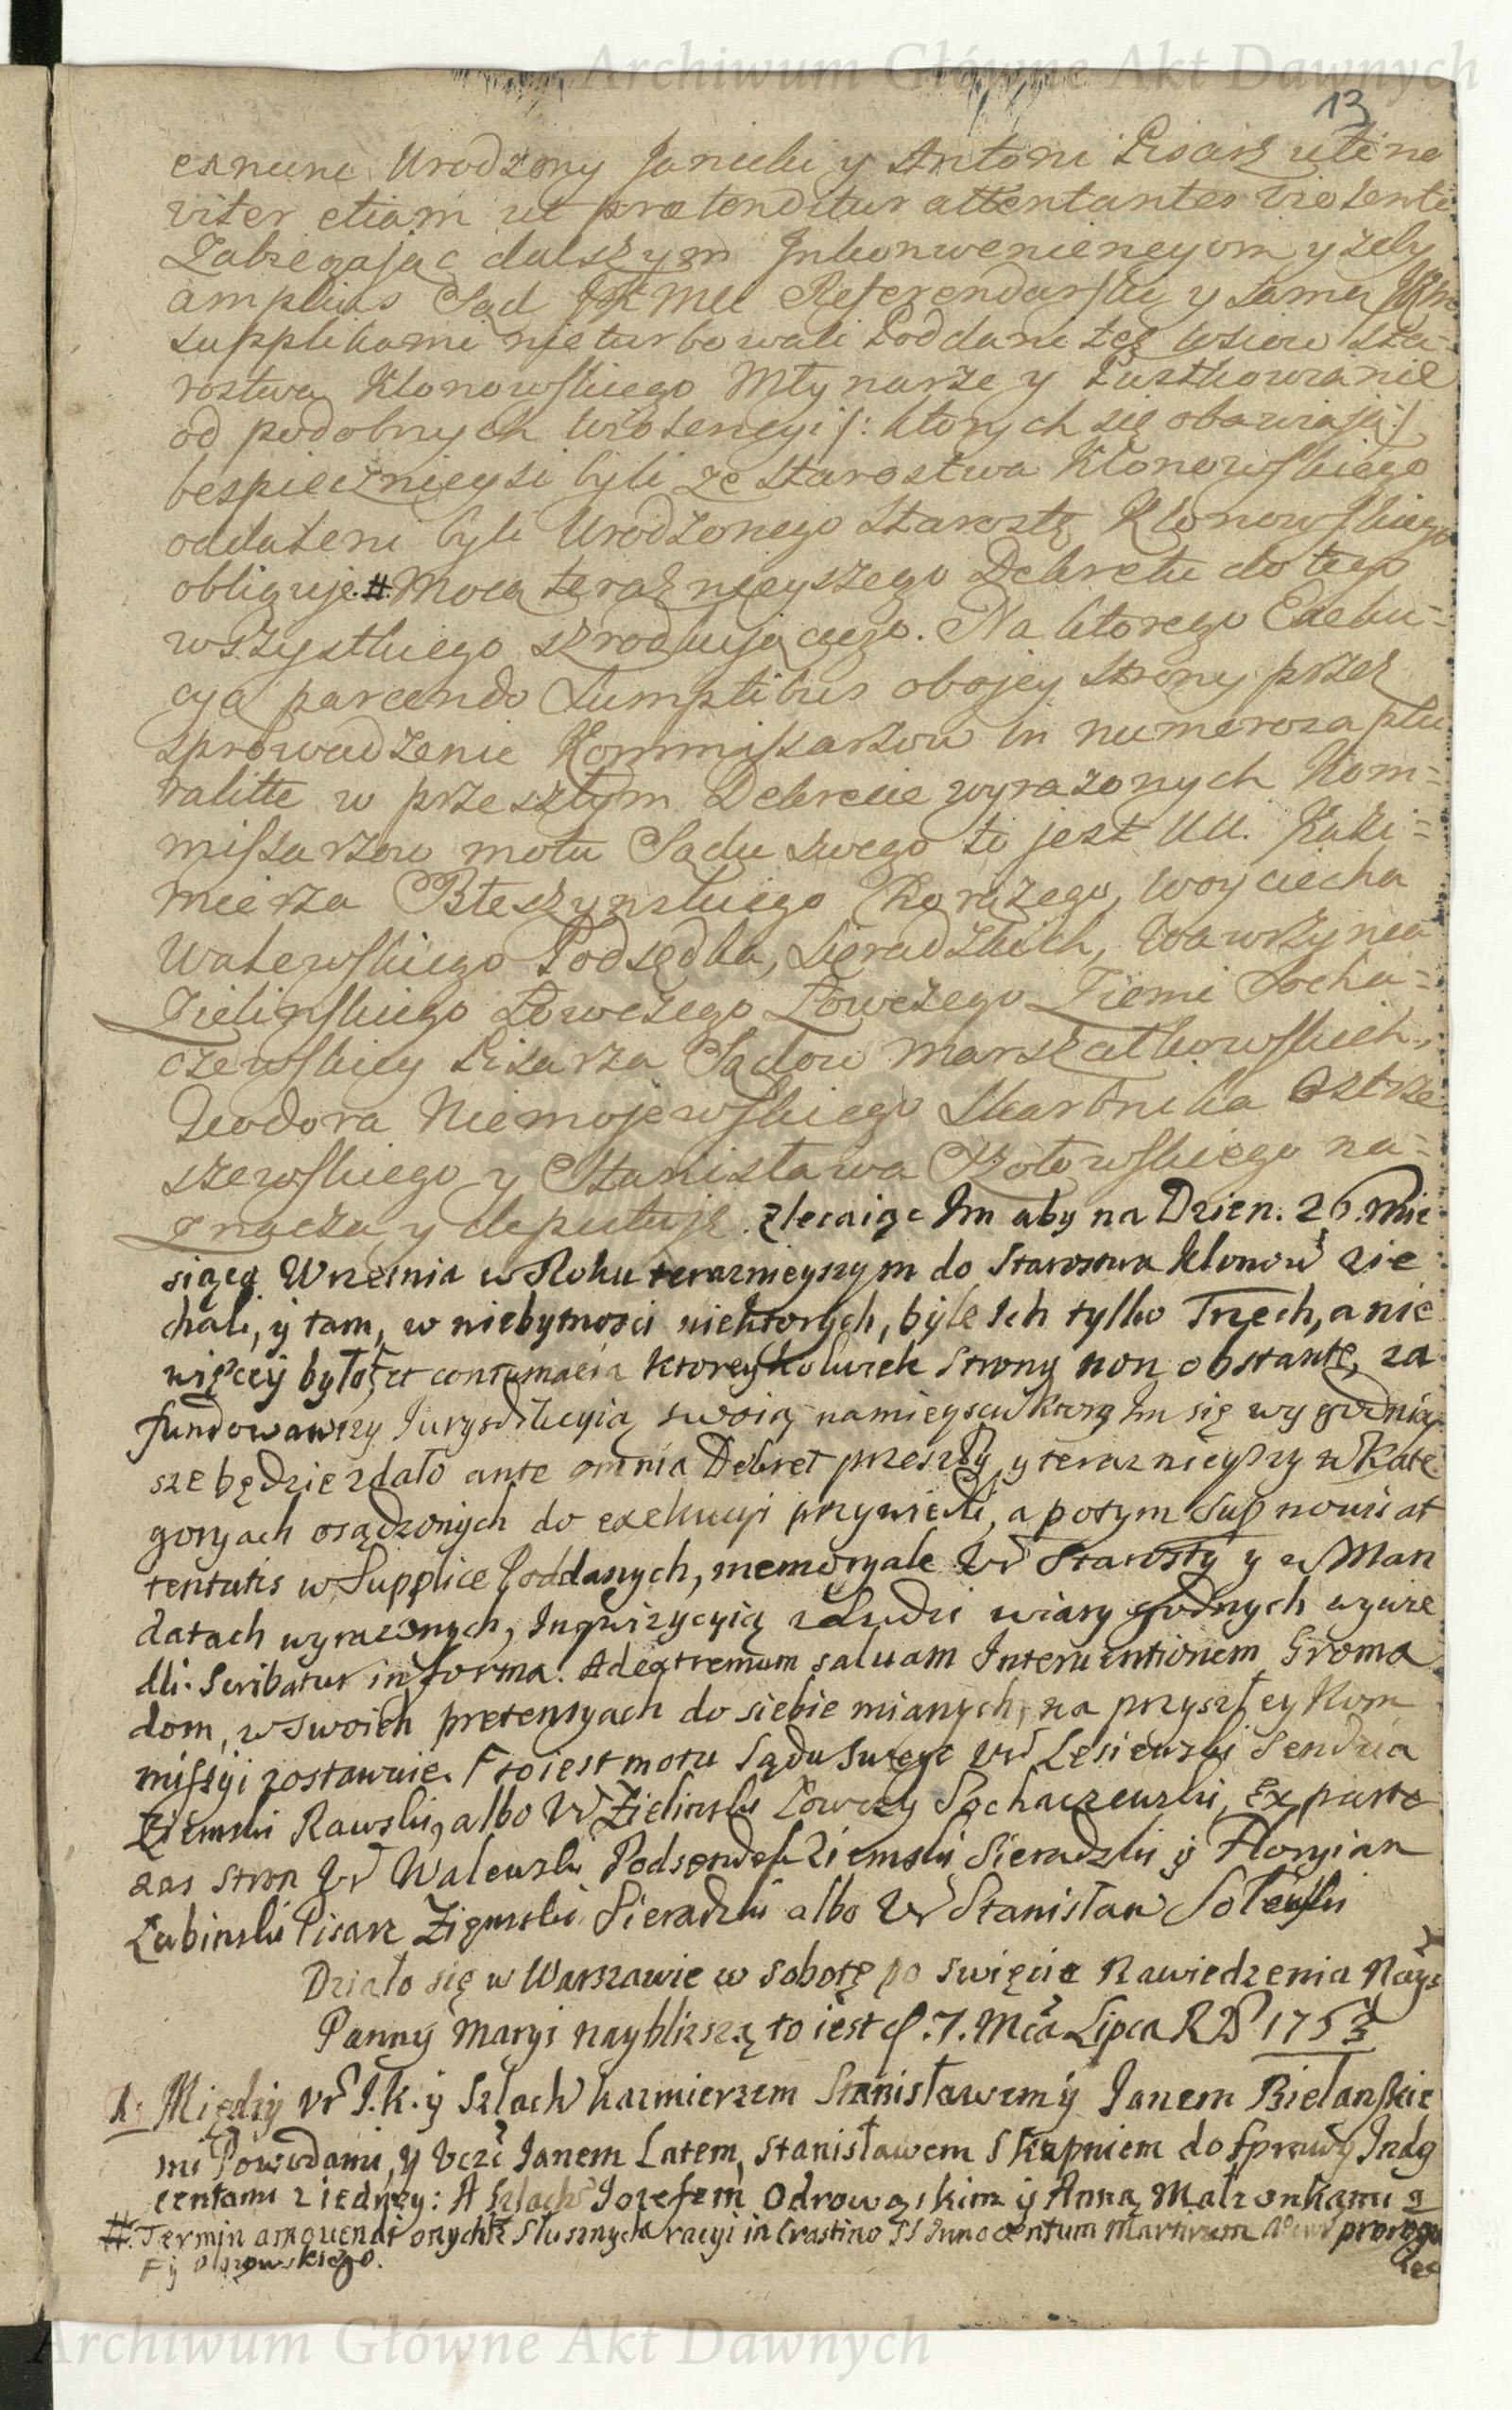 Archiwum Główne Akt Dawnych
13
exnunc Urodzony Janicki y Antoni Pisarz
viter etiam ut prætenditur attentantes
Zabiegaiąc dalszym Inkonweniencyom y zeby
amplius Sąd Referendarski y samą
supplikami nieturbowali Poddani teÿ wsiow Sta=
rostwa Klonowskiego Młynarze y Pustkowianie
od podobnych wiolencyi /: ktorych się obawiaią :/
bespiecznieysi byli ze Starostwa Klonowskiego
oddaleni byli Urodzonego Starostę Klonowskiego
obliguje # Mocą teraznieyszego Dekretu do tego
wszystkiego szrodkuiącego. Na ktorego Exeku=
cyą parcendo Sumptibus obojey strony przez
sprowadzenie Kommissarzow in numerosa plu
ralitte w przeszłym Dekrecie wyrazonych Kom=
missarzow motu Sądu swego to jest UU. Kazi=
mierza Błeszynskiego Chorązego, Woyciecha
Walewskiego Podsędka, Sieradzkich, Wawrzynca
Zielinskiego Łowczego Łowczego Ziemi Socha=
czewskiey Pisarza Sądow Marszałkowskich,
Teodora Niemojewskiego Skarbnika Ostrze
szewskiego y Stanisława Kotowskiego na=
znacza y deputuje. Zlecaiąc Im aby na Dzien. 26. Mie
siąca Wrzesnia w Roku teraznieyszym do Starostwa Klonow zie
chali, y tam, w niebytnosci niektorych, byle Ich tylko Trzech, a nie
więcey było, et contumacia ktoreykolwiek strony non obstante, za
fundowawszy Jurysdikcyią swoią na mieyscu ktorą Im się wygodniey
sze będzie zdało ante omnia Dekret przeszły, y teraznieyszy w Kate
goryach osądzonych do exekucyi przywiedli, a potym sup noviis at
tentatis w Supplice Poddanych, memoryale Ur Starosty y w Man
datach wyrazonych, Inqwizycyią z Ludzi wiary godnych wywie
dli. Scribatur in forma. Ad extremum salvam Interventionem Groma
dom, w swoich pretensyach do siebie mianych, na przyszłey Kom
missyi zostawuie. F to iest motu Sądu swego Ur Lesiewski Sendzia
Ziemski Rawski, albo Ur Zielinski Łowczy Sochaczewski, Ex parte
zas stron Ur Walewski Podsendek Ziemski Sieradzki y Floryian
Łubinski Pisarz Ziemski Sieradzki albo Ur Stanisław
Działo się w Warszawie w Sobotę po Swięcie Nawiedzenia Nayś
Panny Maryi naybliszszą to iest d. 7. Mca Lipca RP 1753
1. Między Ur J.K. y Szlach kazmierzem Stanisławem y Janem Bielanskie
mi Powodami, y Ucz Janem Latem, Stanisławem Skupniem do sprawy Inda
centami z iedney: A Szlach Jozefem Odrowązkim y Anną Małzonkami
# Termin arguendi onychze słusznych racyi in Crastino SS Innocentum Martirum proroguie
F y Olszowskiego.
Archiwum Główne Akt Dawnych